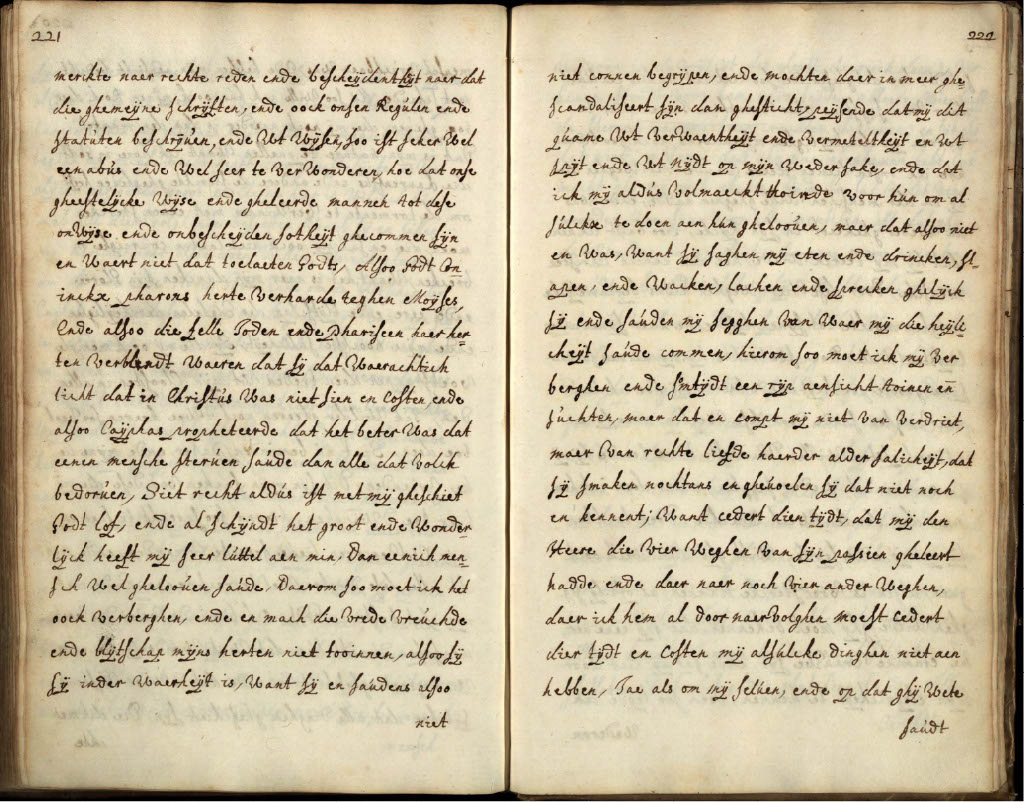 221
merckte naer rechte reden ende bescheydentheyt naer dat
die ghemeyne schryften, ende oock onsen Regulen ende
statuten beschryven, ende Wt Wysen, soo ist seker Wel
een abus ende Wel seer te verWonderen, hoe dat onse
gheestelycke Wyse ende gheleerde mannen tot dese
onWyse ende onbescheyden sotheyt ghecommen syn
en Waert niet dat toelaeten Godts, Alsoo Godt Con-
inckx pharons herte verharde teghen Moyses,
Ende alsoo die felle Joden ende Phariseen haer her-
ten verblendt Waeren dat sy dat Waerachtich
licht dat in Christus Was niet sien en Costen, ende
alsoo Cayphas propheteerde dat het beter Was dat
eenen mensche sterven saude dan alle dat volck
bedorven, Siet recht aldus ist met my gheschiet
Godt lof, ende al schyndt het groot ende Wonder-
lyck heeft my seer luttel aen min, Dan eenich men-
sch Wel ghelooven saude, Daerom soo moet ick het
oock verberghen, ende en mach die vrede vreuchde
ende blytschap myns herten niet tooinnen, alsoo sy
sy inder Waerheyt is, Want sy en saudens alsoo
niet
222
niet connen begrypen, ende mochten daer in meer ghe-
scandaliseert syn dan ghesticht, peysende dat my dit
quame Wt verWaentheyt ende vermeteltheyt en Wt
spyt ende Wt nydt op myn Weder sake, ende dat
ick my aldus volmaeckt thoinde voor hun om al
sulckx te doen aen hun ghelooven, maer dat alsoo niet
en Was, Want sy saghen my eten ende drincken, sl-
apen, ende Waecken, lachen ende sprecken ghelyck
sy ende sauden my segghen van Waer my die heyli
cheyt saude commen, hierom soo moet ick my ver
berghen ende smtydt een ryp aensicht toinen en̄
suchten, maer dat en compt my niet van verdriet,
maer van rechte liefde haerder alder salicheyt, dat
sy smaken nochtans en ghevoelen sy dat niet noch
en kennent; Want cedert dien tydt, dat my den
Heere die vier Weghen van syn passien gheleert
hadde ende daer naer noch vier ander Weghen,
daer ick hem al door naervolghen moest Cedert
dier tydt en Costen my alsulcke dinghen niet aen
hebben, Jae als om my selven, ende op dat ghy Wete
saudt